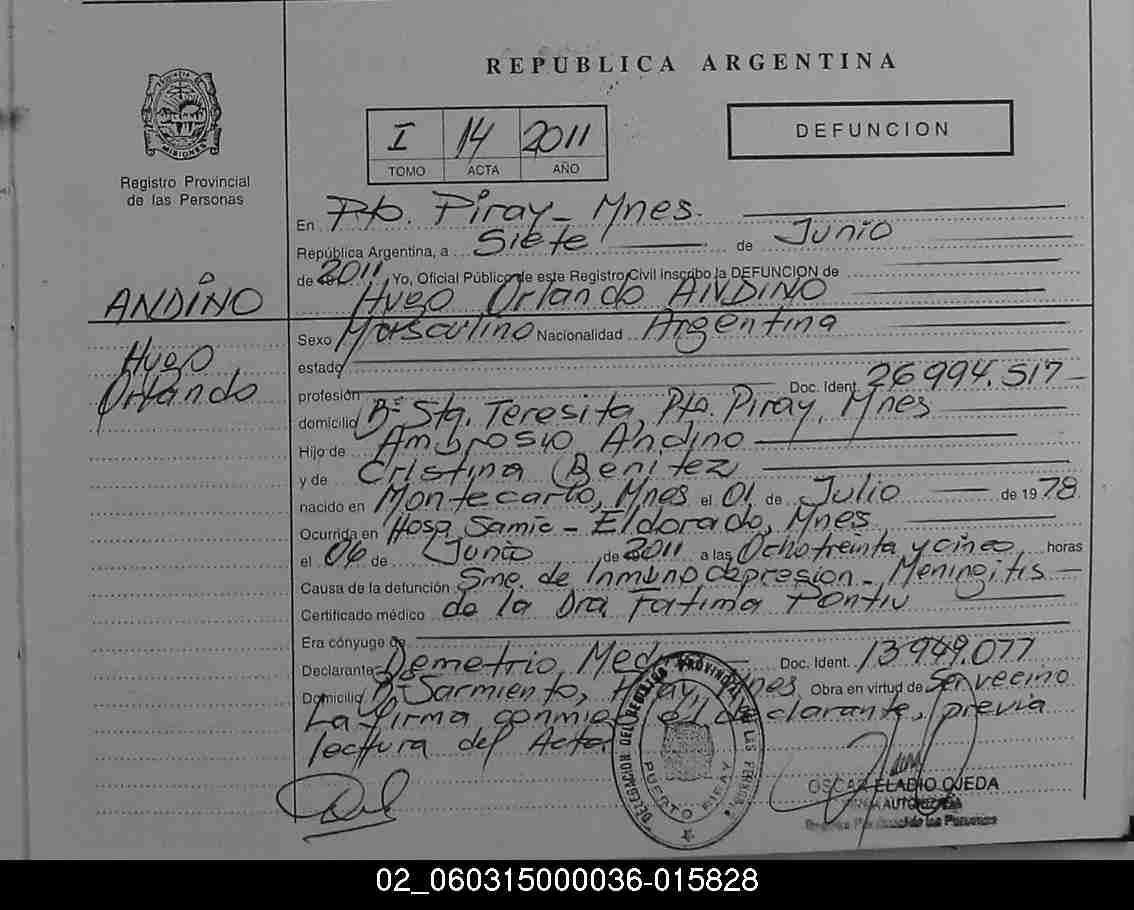 REPUBLICA ARGENTINA
I 14 2011
TOMO ACTA AÑO
DEFUNCION
MISIONES
Registro Provincial
de las Personas
ANDINO
Hugo
Orlando
En Pto. Piray - Mnes.
República Argentina, a Siete de Junio
de 2011, Yo, Oficial Público de este Registro Civil inscribo la DEFUNCION de
Hugo Orlando ANDINO
Sexo Masculino Nacionalidad Argentina
estado
profesión Doc. Ident. 26994.517-
domicilio Bº Sta. Teresita, Pto. Piray, Mnes
Hijo de Ambrosio Andino
y de Cristina Benitez
nacido en Montecarlo, Mnes el 01 de Julio de 1978
Ocurrida en Hosp. Samic - Eldorado, Mnes
el 06 de Junio de 2011 a las Ocho treinta y cinco horas
Causa de la defunción Sme. de Inmuno depresion - Meningitis -
Certificado médico de la Dra. Fatima
Era cónyuge de
Declarante Demetrio Doc. Ident. 13949.077
Domicilio Bº Sarmiento, Piray, Mnes Obra en virtud de Ser vecino
La firma conmigo el declarante, previa
lectura del Acta
PUERTO PIRAY
OSCAR ELADIO OJEDA
02_060315000036-015828